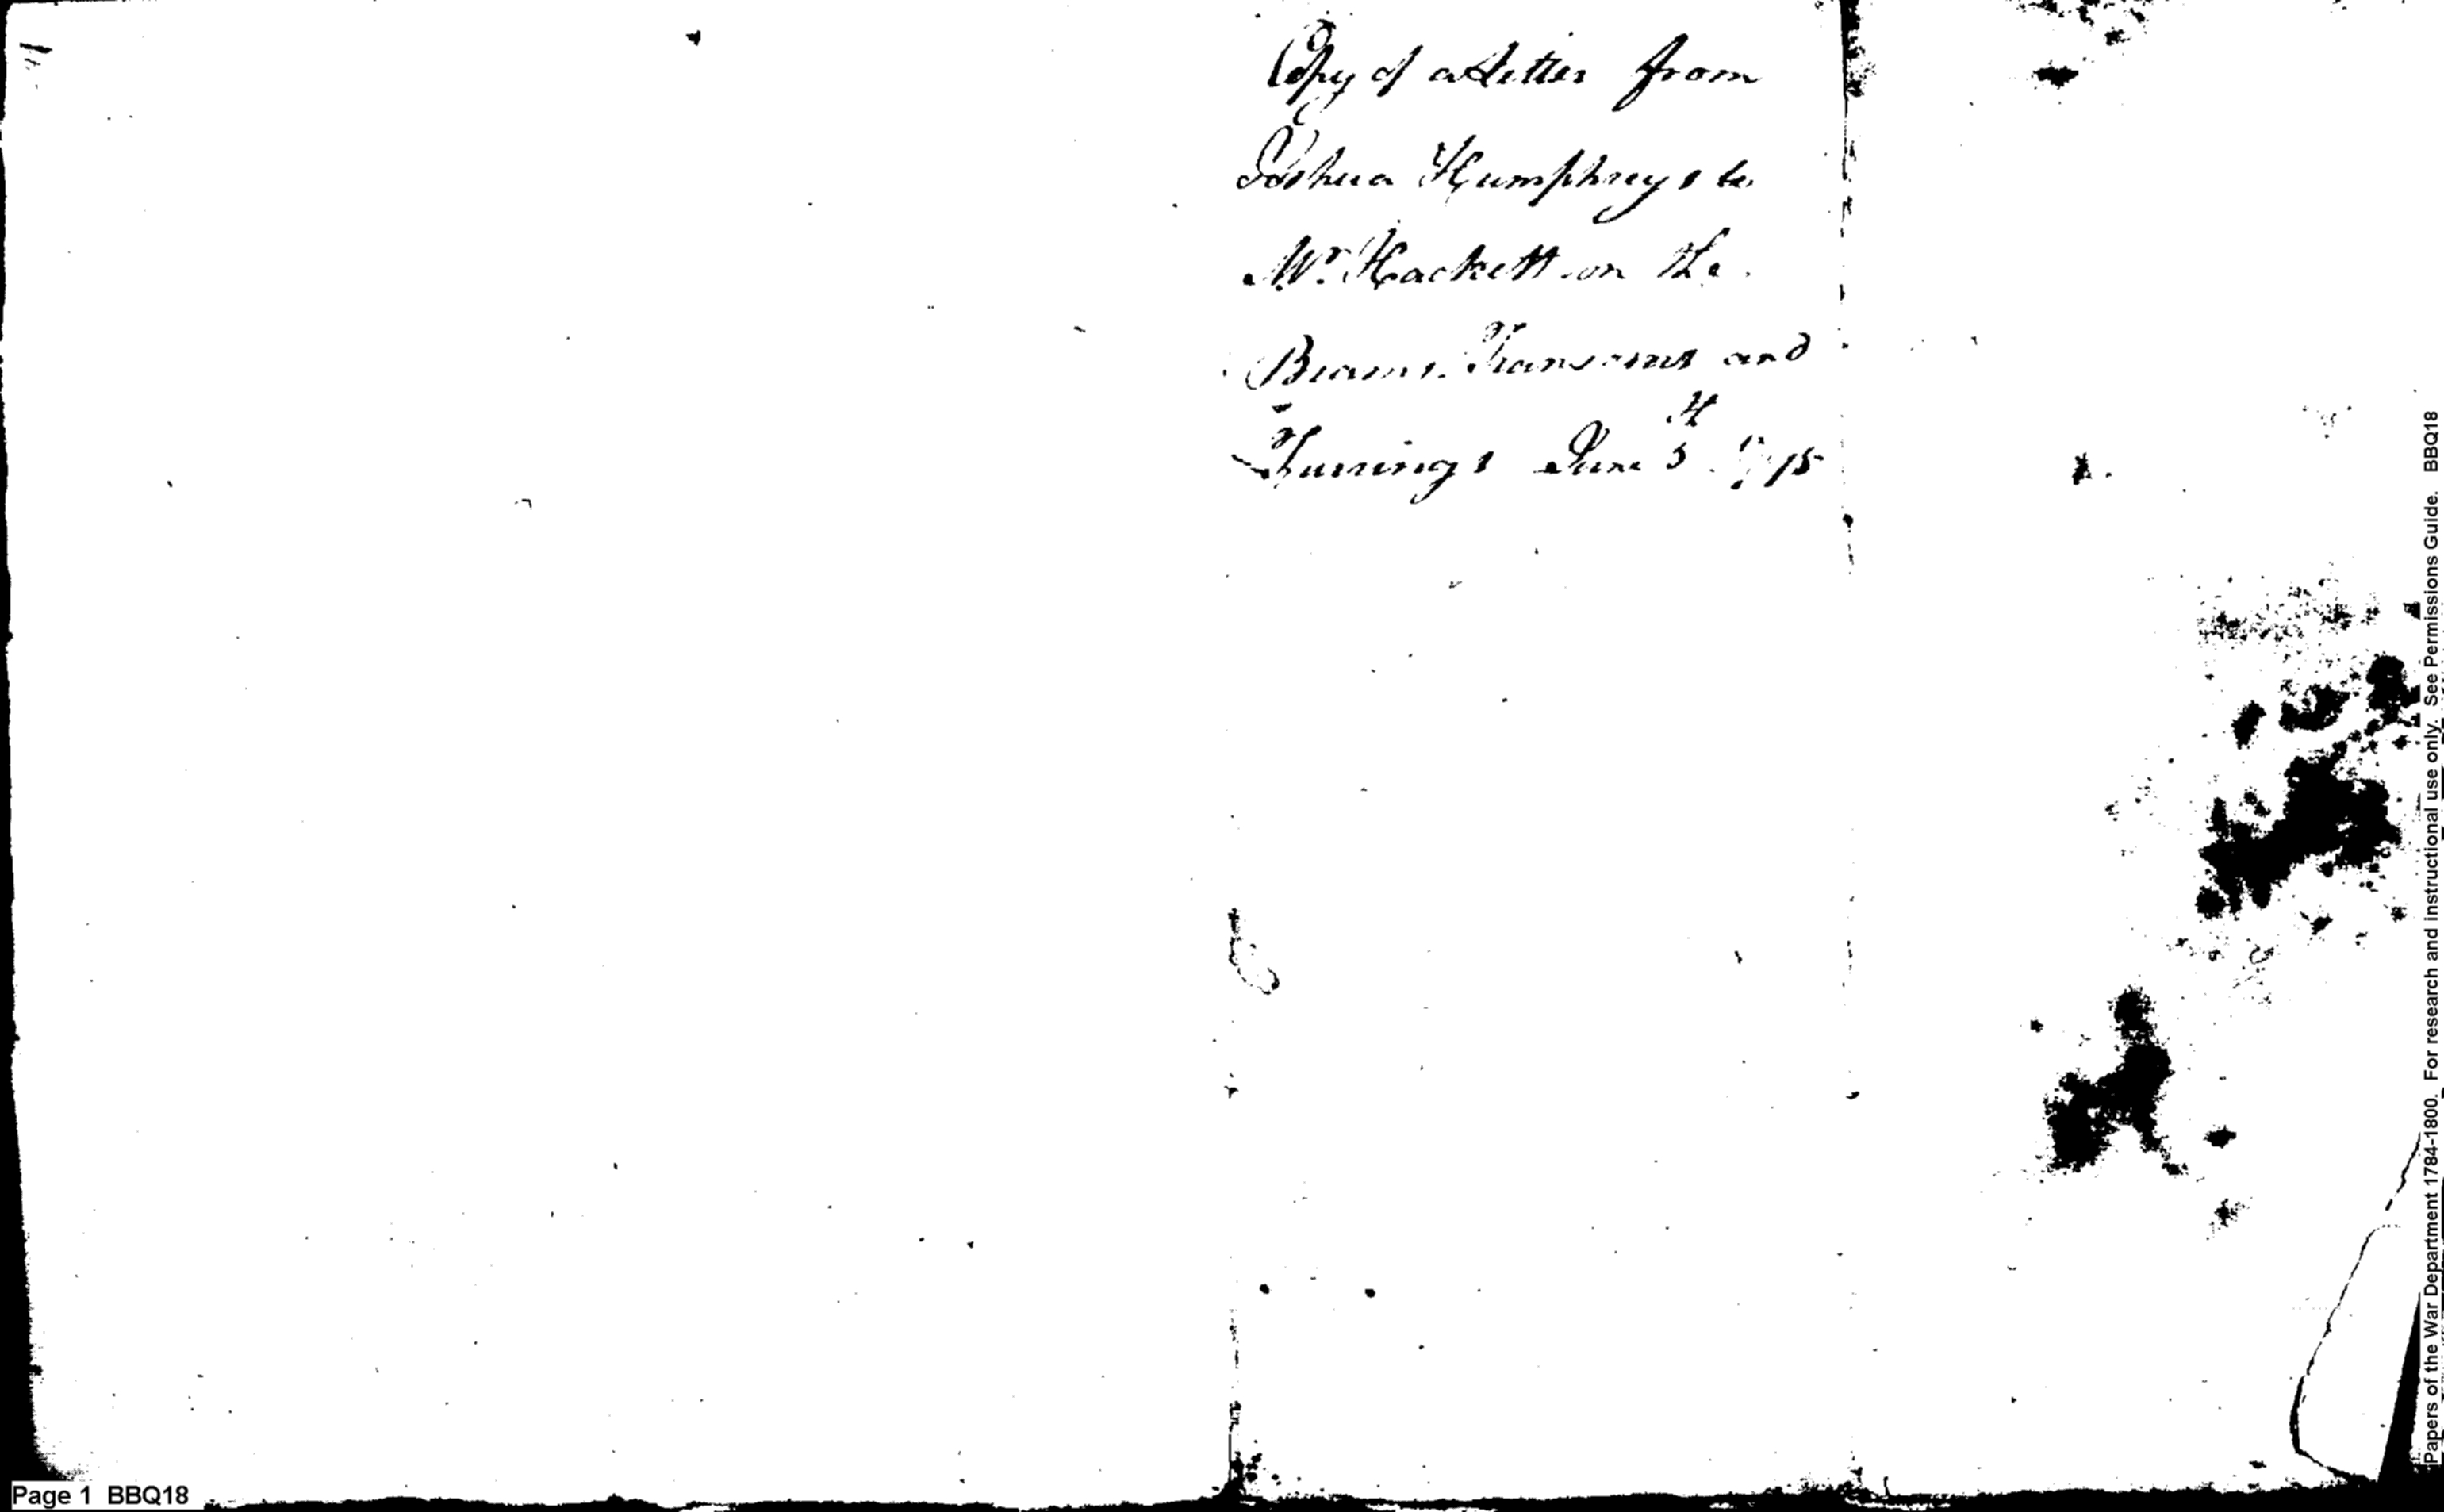 Copy of a Letter from
Joshua Humphreys to
Mr. Hackett on the
Beams. Transoms and
June 5th 1795
Papers of the War Department 1784-1800. For research and instructional use only. See Permissions Guide. BBQ18
Page 1 BBQ18